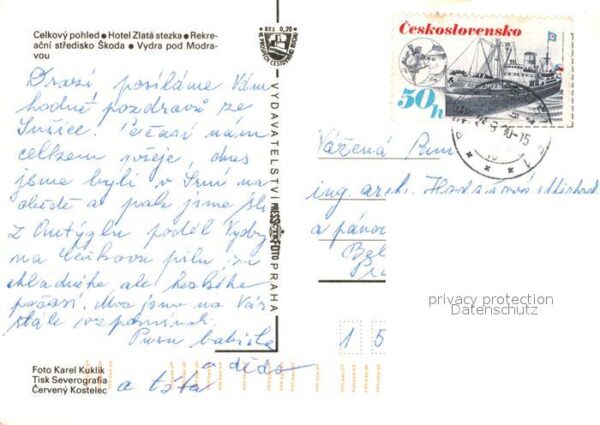 Celkový pohled • Hotel Zlatá stezka • Rekre-
ační středisko Škoda • Vydra pod Modra-
vou
Drazí posíláme Vám
hodně pozdravů ze
Sušice. Počasí nám
celkem přeje, dnes
jsme byli v Srní na
obědě a pak jsme šli
z Antýglu podél Vydry
na Čeňkovu pilu za
chladného ale hezkého
počasí. Moc jsme na Vás
stále vzpomínali.
Pusu babička
a děda
a táta
Foto Karel Kuklík
Tisk Severografia
Červený Kostelec
Kčs 0,20
VYDAVATELSTVÍ PRESSFOTO PRAHA
Československo
50h
Vážená Paní
ing. arch.
a pánov
privacy protection
Datenschutz
1 5